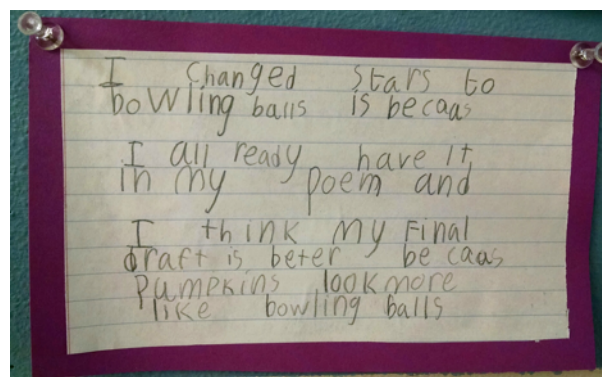 I changed stars to
bowling balls is becaas
I all ready have it
in my poem and
I think my Final
draft is beter be caas
Pumpkins look more
like bowling balls